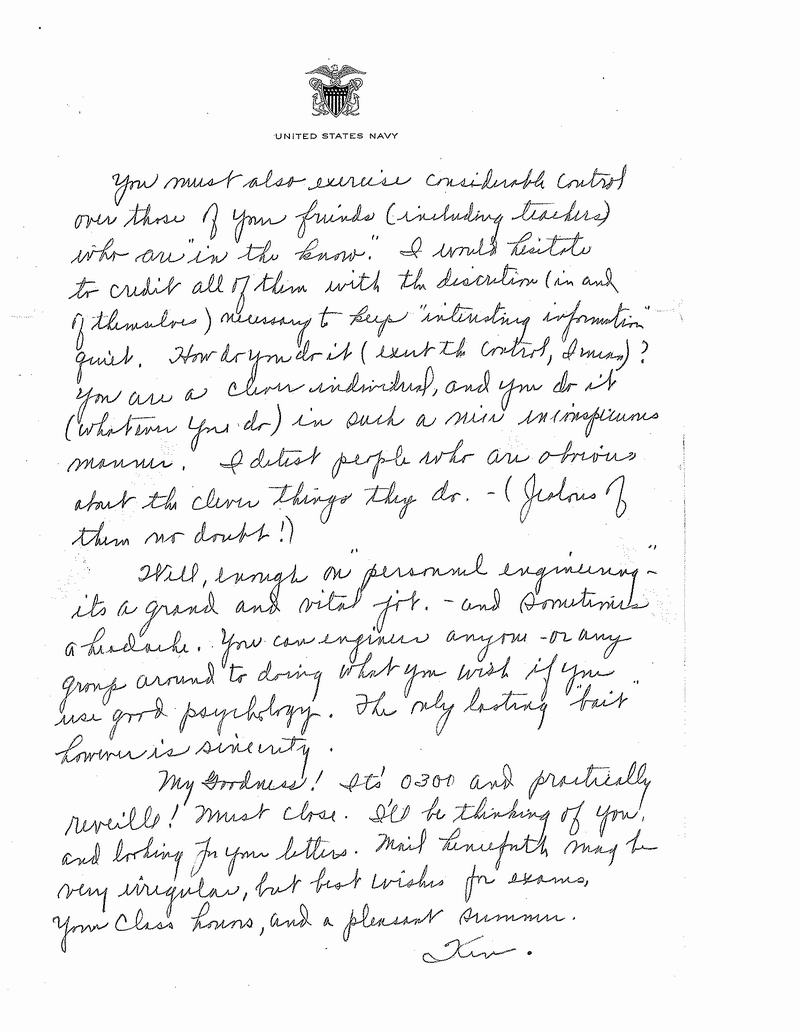 UNITED STATES NAVY
You must also exercise considerable control
over those of your friends (including teachers)
who are "in the know." I would hesitate
to credit all of them with the discretion (in and
of themselves) necessary to keep "interesting information"
quiet. How do you do it (exert the control, I mean)?
You are a clever individual, and you do it
(whatever you do) in such a nice inconspicuous
manner. I detest people who are obvious
about the clever things they do. - (Jealous of
them no doubt!)
Well, enough on "personnel engineering" -
its a grand and vital job. - and sometimes
a headache. You can engineer anyone - or any
group around to doing what you wish if you
use good psychology. The only lasting "bait"
however is sincerity.
My Goodness! It's 0300 and practically
reveille! Must close. I'll be thinking of you,
and looking for your letters. Mail henceforth may be
very irregular, but best wishes for exams,
your Class honors, and a pleasant summer.
Ken.